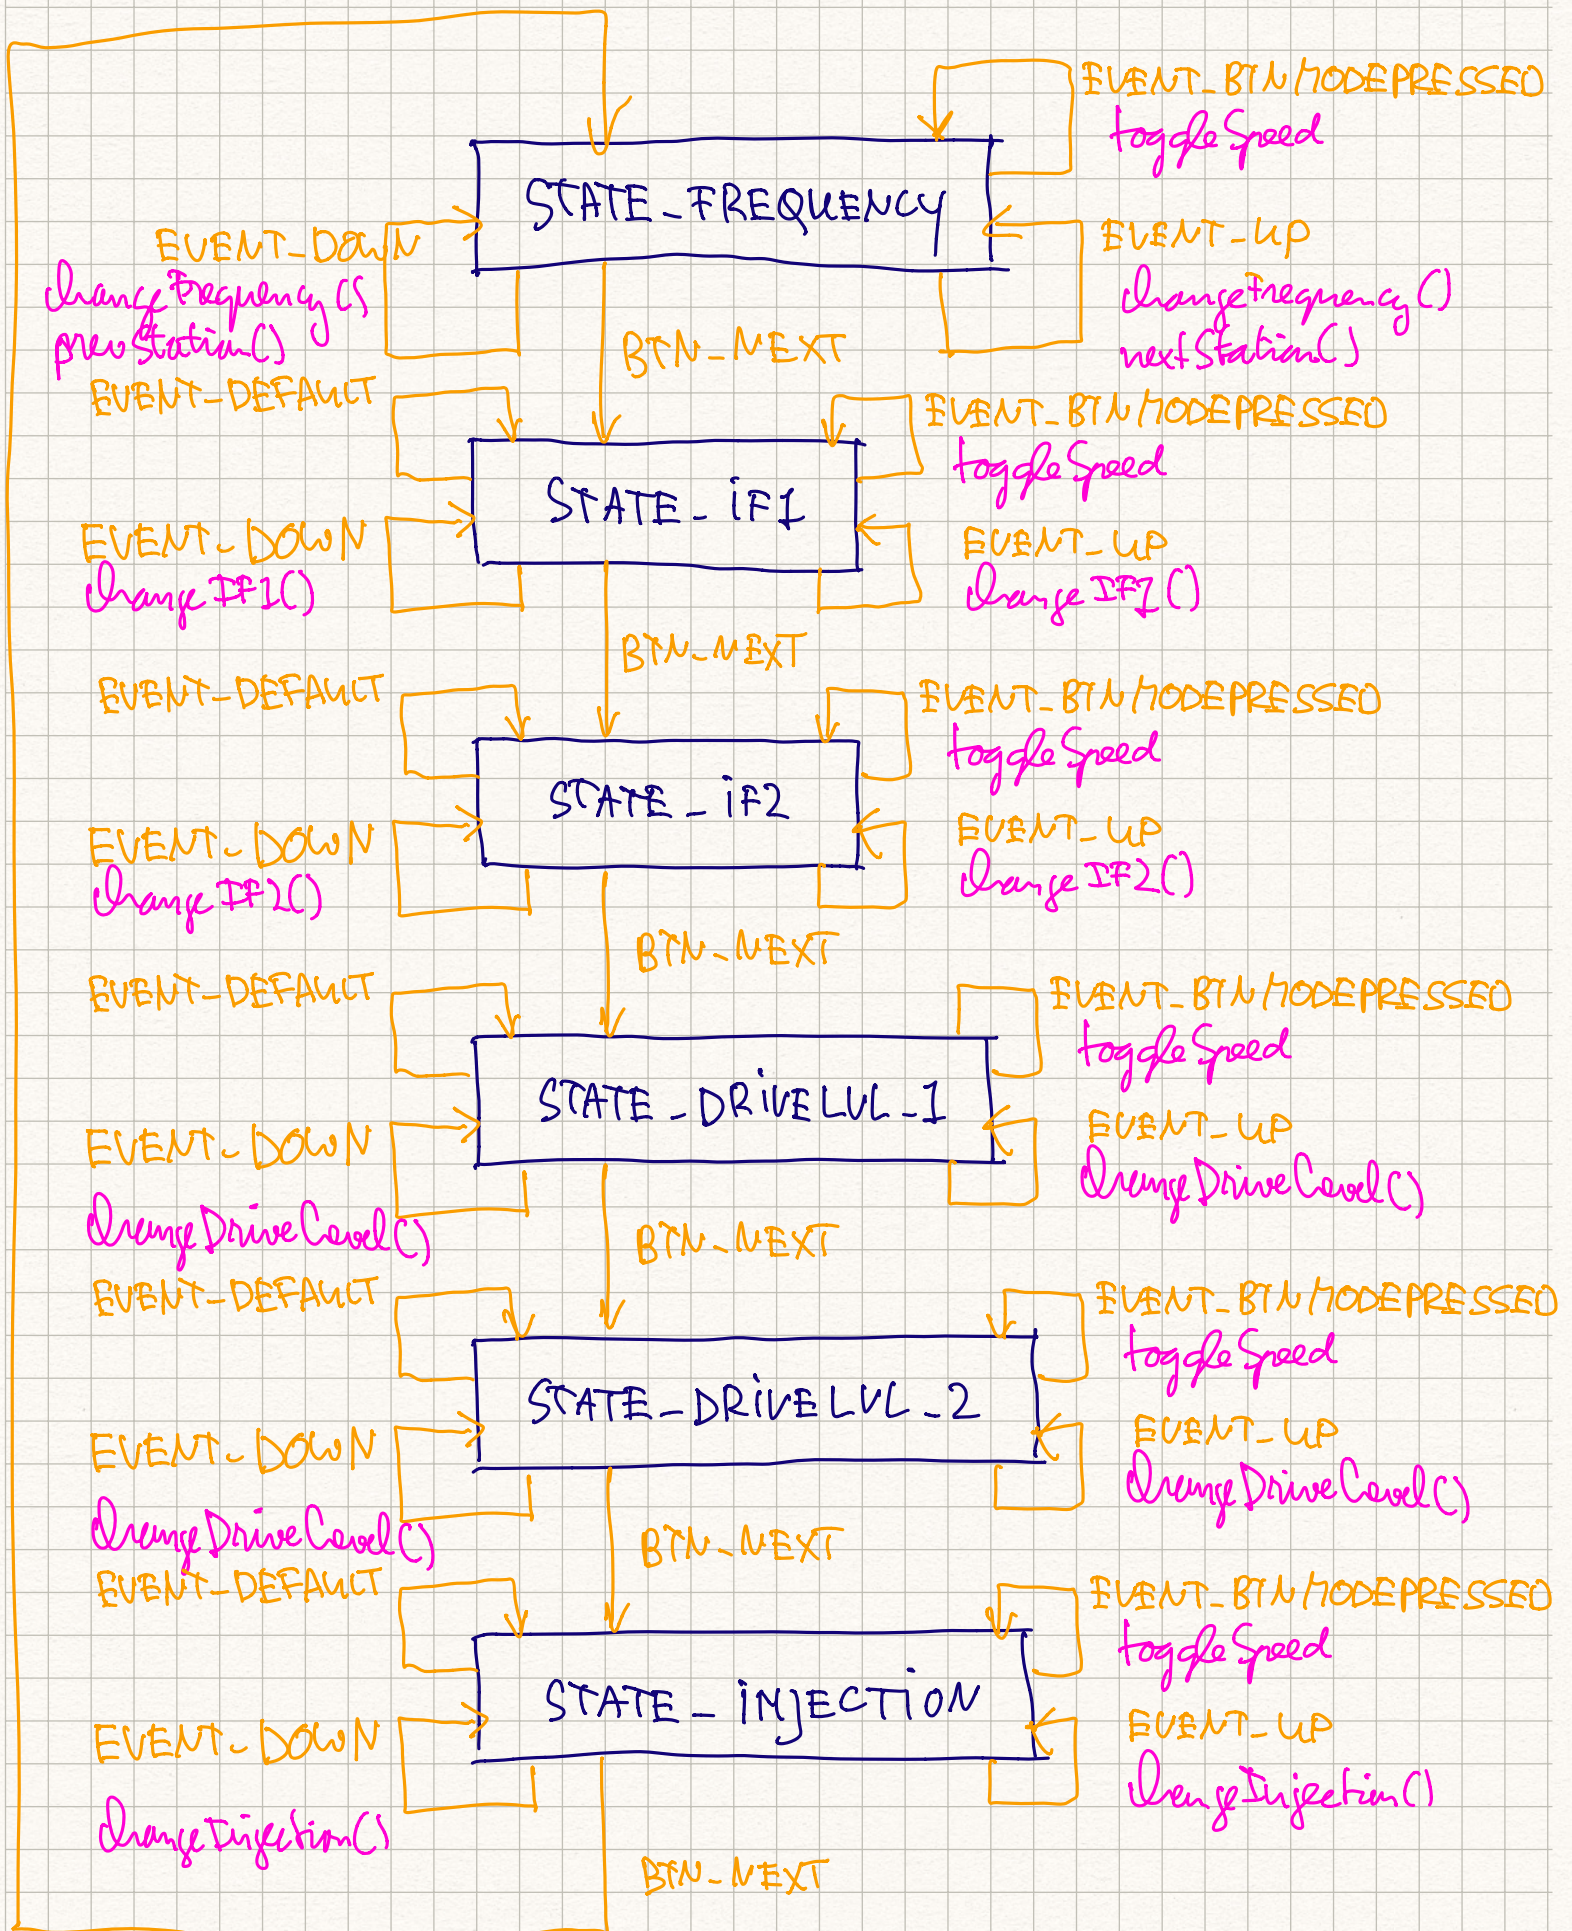 EVENT_BTNMODEPRESSED
toggleSpeed
STATE_FREQUENCY
EVENT_DOWN
changeFrequency()
prevStation()
EVENT_UP
changeFrequency()
nextStation()
BTN_NEXT
EVENT-DEFAULT
EVENT_BTNMODEPRESSED
toggleSpeed
STATE_iF1
EVENT-DOWN
changeIF1()
EVENT_UP
changeIF1()
BTN_NEXT
EVENT-DEFAULT
EVENT_BTNMODEPRESSED
toggleSpeed
STATE_iF2
EVENT-DOWN
changeIF2()
EVENT_UP
changeIF2()
BTN_NEXT
EVENT-DEFAULT
EVENT_BTNMODEPRESSED
toggleSpeed
STATE_DRiVELVL_1
EVENT-DOWN
changeDriveLevel()
EVENT_UP
changeDriveLevel()
BTN_NEXT
EVENT-DEFAULT
EVENT_BTNMODEPRESSED
toggleSpeed
STATE_DRiVELVL_2
EVENT-DOWN
changeDriveLevel()
EVENT_UP
changeDriveLevel()
BTN_NEXT
EVENT-DEFAULT
EVENT_BTNMODEPRESSED
toggleSpeed
STATE_iNJECTiON
EVENT-DOWN
changeInjection()
EVENT_UP
changeInjection()
BTN_NEXT